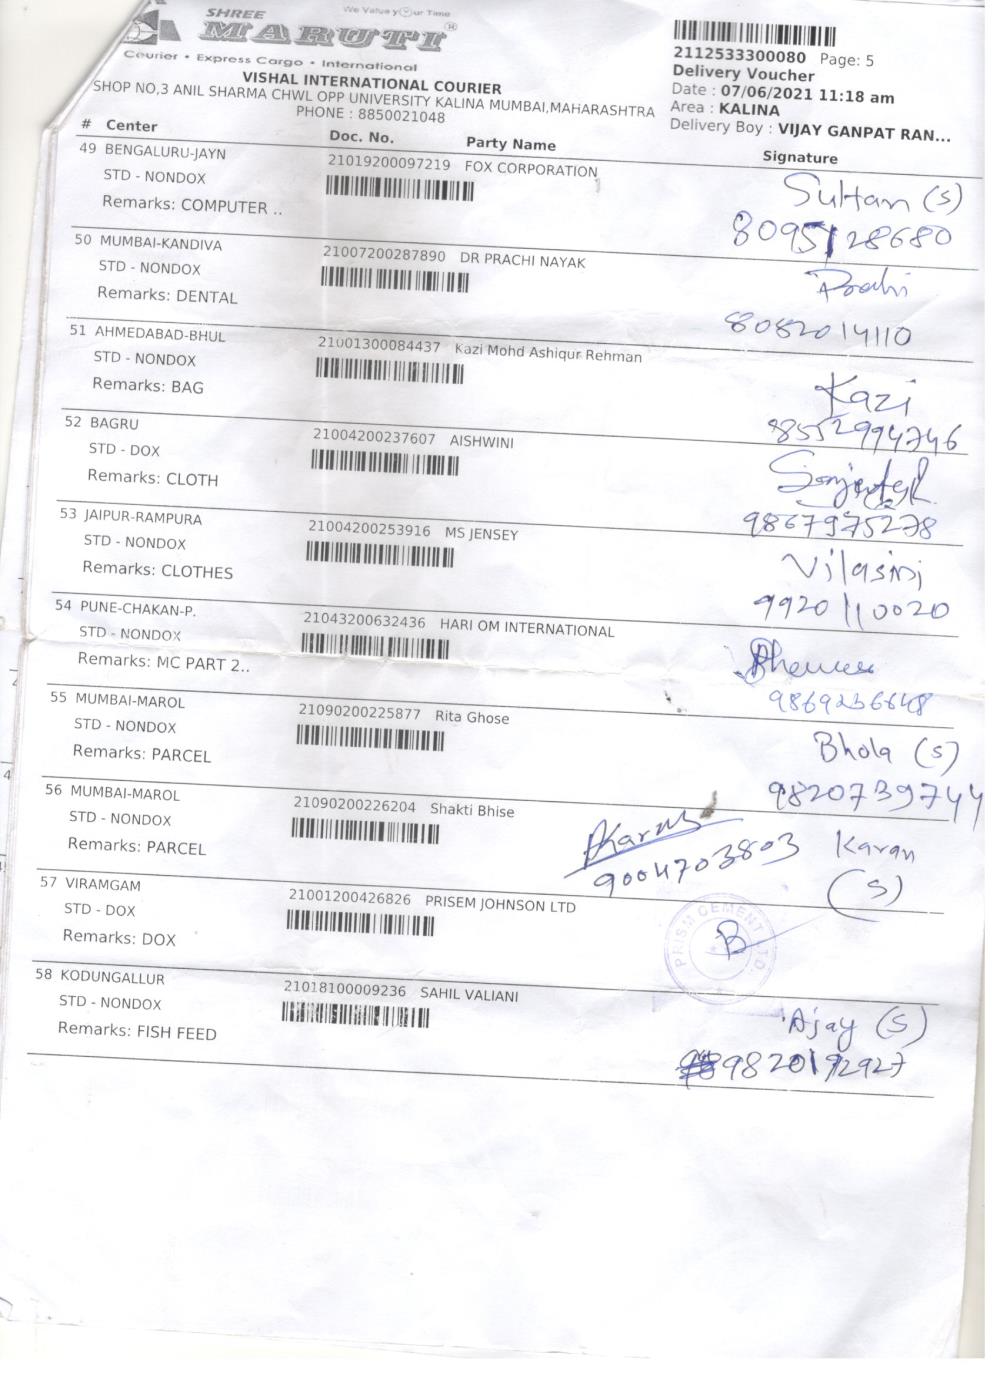 We Value your Time
SHREE
MARUTI®
Courier • Express Cargo • International
VISHAL INTERNATIONAL COURIER
SHOP NO,3 ANIL SHARMA CHWL OPP UNIVERSITY KALINA MUMBAI,MAHARASHTRA
PHONE : 8850021048
2112533300080 Page: 5
Delivery Voucher
Date : 07/06/2021 11:18 am
Area : KALINA
Delivery Boy : VIJAY GANPAT RAN...
# Center Doc. No. Party Name Signature
49 BENGALURU-JAYN 21019200097219 FOX CORPORATION
STD - NONDOX Sultan (S)
Remarks: COMPUTER .. 8095128680
50 MUMBAI-KANDIVA 21007200287890 DR PRACHI NAYAK
STD - NONDOX
Remarks: DENTAL 8082014110
51 AHMEDABAD-BHUL 21001300084437 Kazi Mohd Ashiqur Rehman
STD - NONDOX Kazi
Remarks: BAG
52 BAGRU 21004200237607 AISHWINI
STD - DOX
Remarks: CLOTH 9867975278
53 JAIPUR-RAMPURA 21004200253916 MS JENSEY
STD - NONDOX Vilasini
Remarks: CLOTHES 9920110020
54 PUNE-CHAKAN-P. 21043200632436 HARI OM INTERNATIONAL
STD - NONDOX
Remarks: MC PART 2.. 9869236648
55 MUMBAI-MAROL 21090200225877 Rita Ghose
STD - NONDOX Bhola (S)
Remarks: PARCEL 9820739744
56 MUMBAI-MAROL 21090200226204 Shakti Bhise
STD - NONDOX Karan Karan
Remarks: PARCEL 9004703803 (S)
57 VIRAMGAM 21001200426826 PRISEM JOHNSON LTD
STD - DOX PRISM CEMENT LTD.
Remarks: DOX B
58 KODUNGALLUR 21018100009236 SAHIL VALIANI
STD - NONDOX Ajay (S)
Remarks: FISH FEED 9820192927